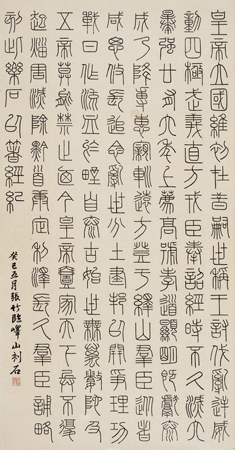 皇帝立國維初在昔嗣世稱王討伐亂逆威
動四極武義直方戎臣奉詔經時不久滅六
暴強廿有六年上薦高號孝道顯明既獻泰
成乃降專惠親巡遠方登于繹山群臣從者
咸思攸長追念亂世分土建邦以開爭理功
戰日作流血於野自泰古始世無萬數陀及
五帝莫能禁止迺今皇帝壹家天下兵不復
起災害滅除黔首康定利澤長久群臣誦略
刻此樂石以著經紀
癸巳五月張竹臨嶧山刻石